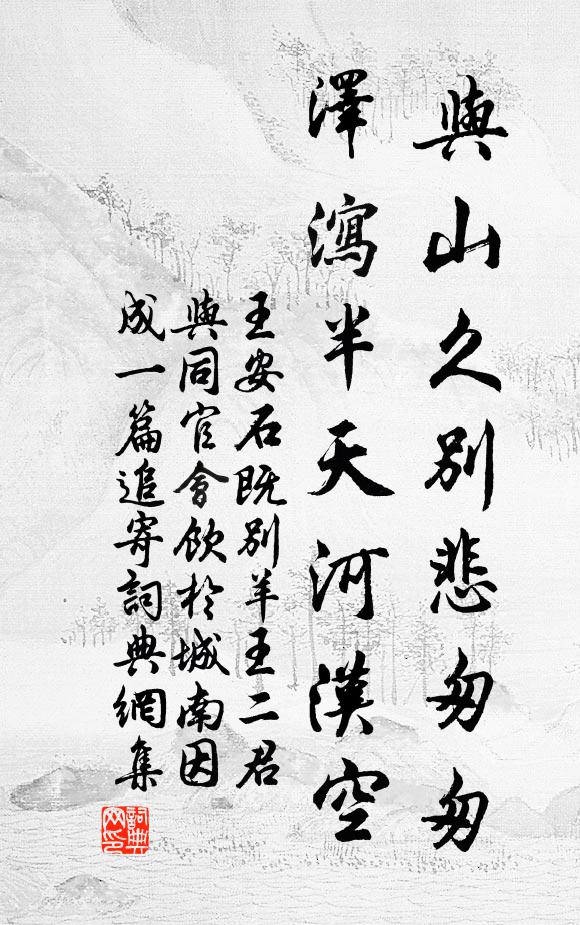 與山久別悲匆匆
澤瀉半天河漢空
王安石既別羊王二君
與同官會飲於城南因
成一篇追寄詞典網集
詞典网印